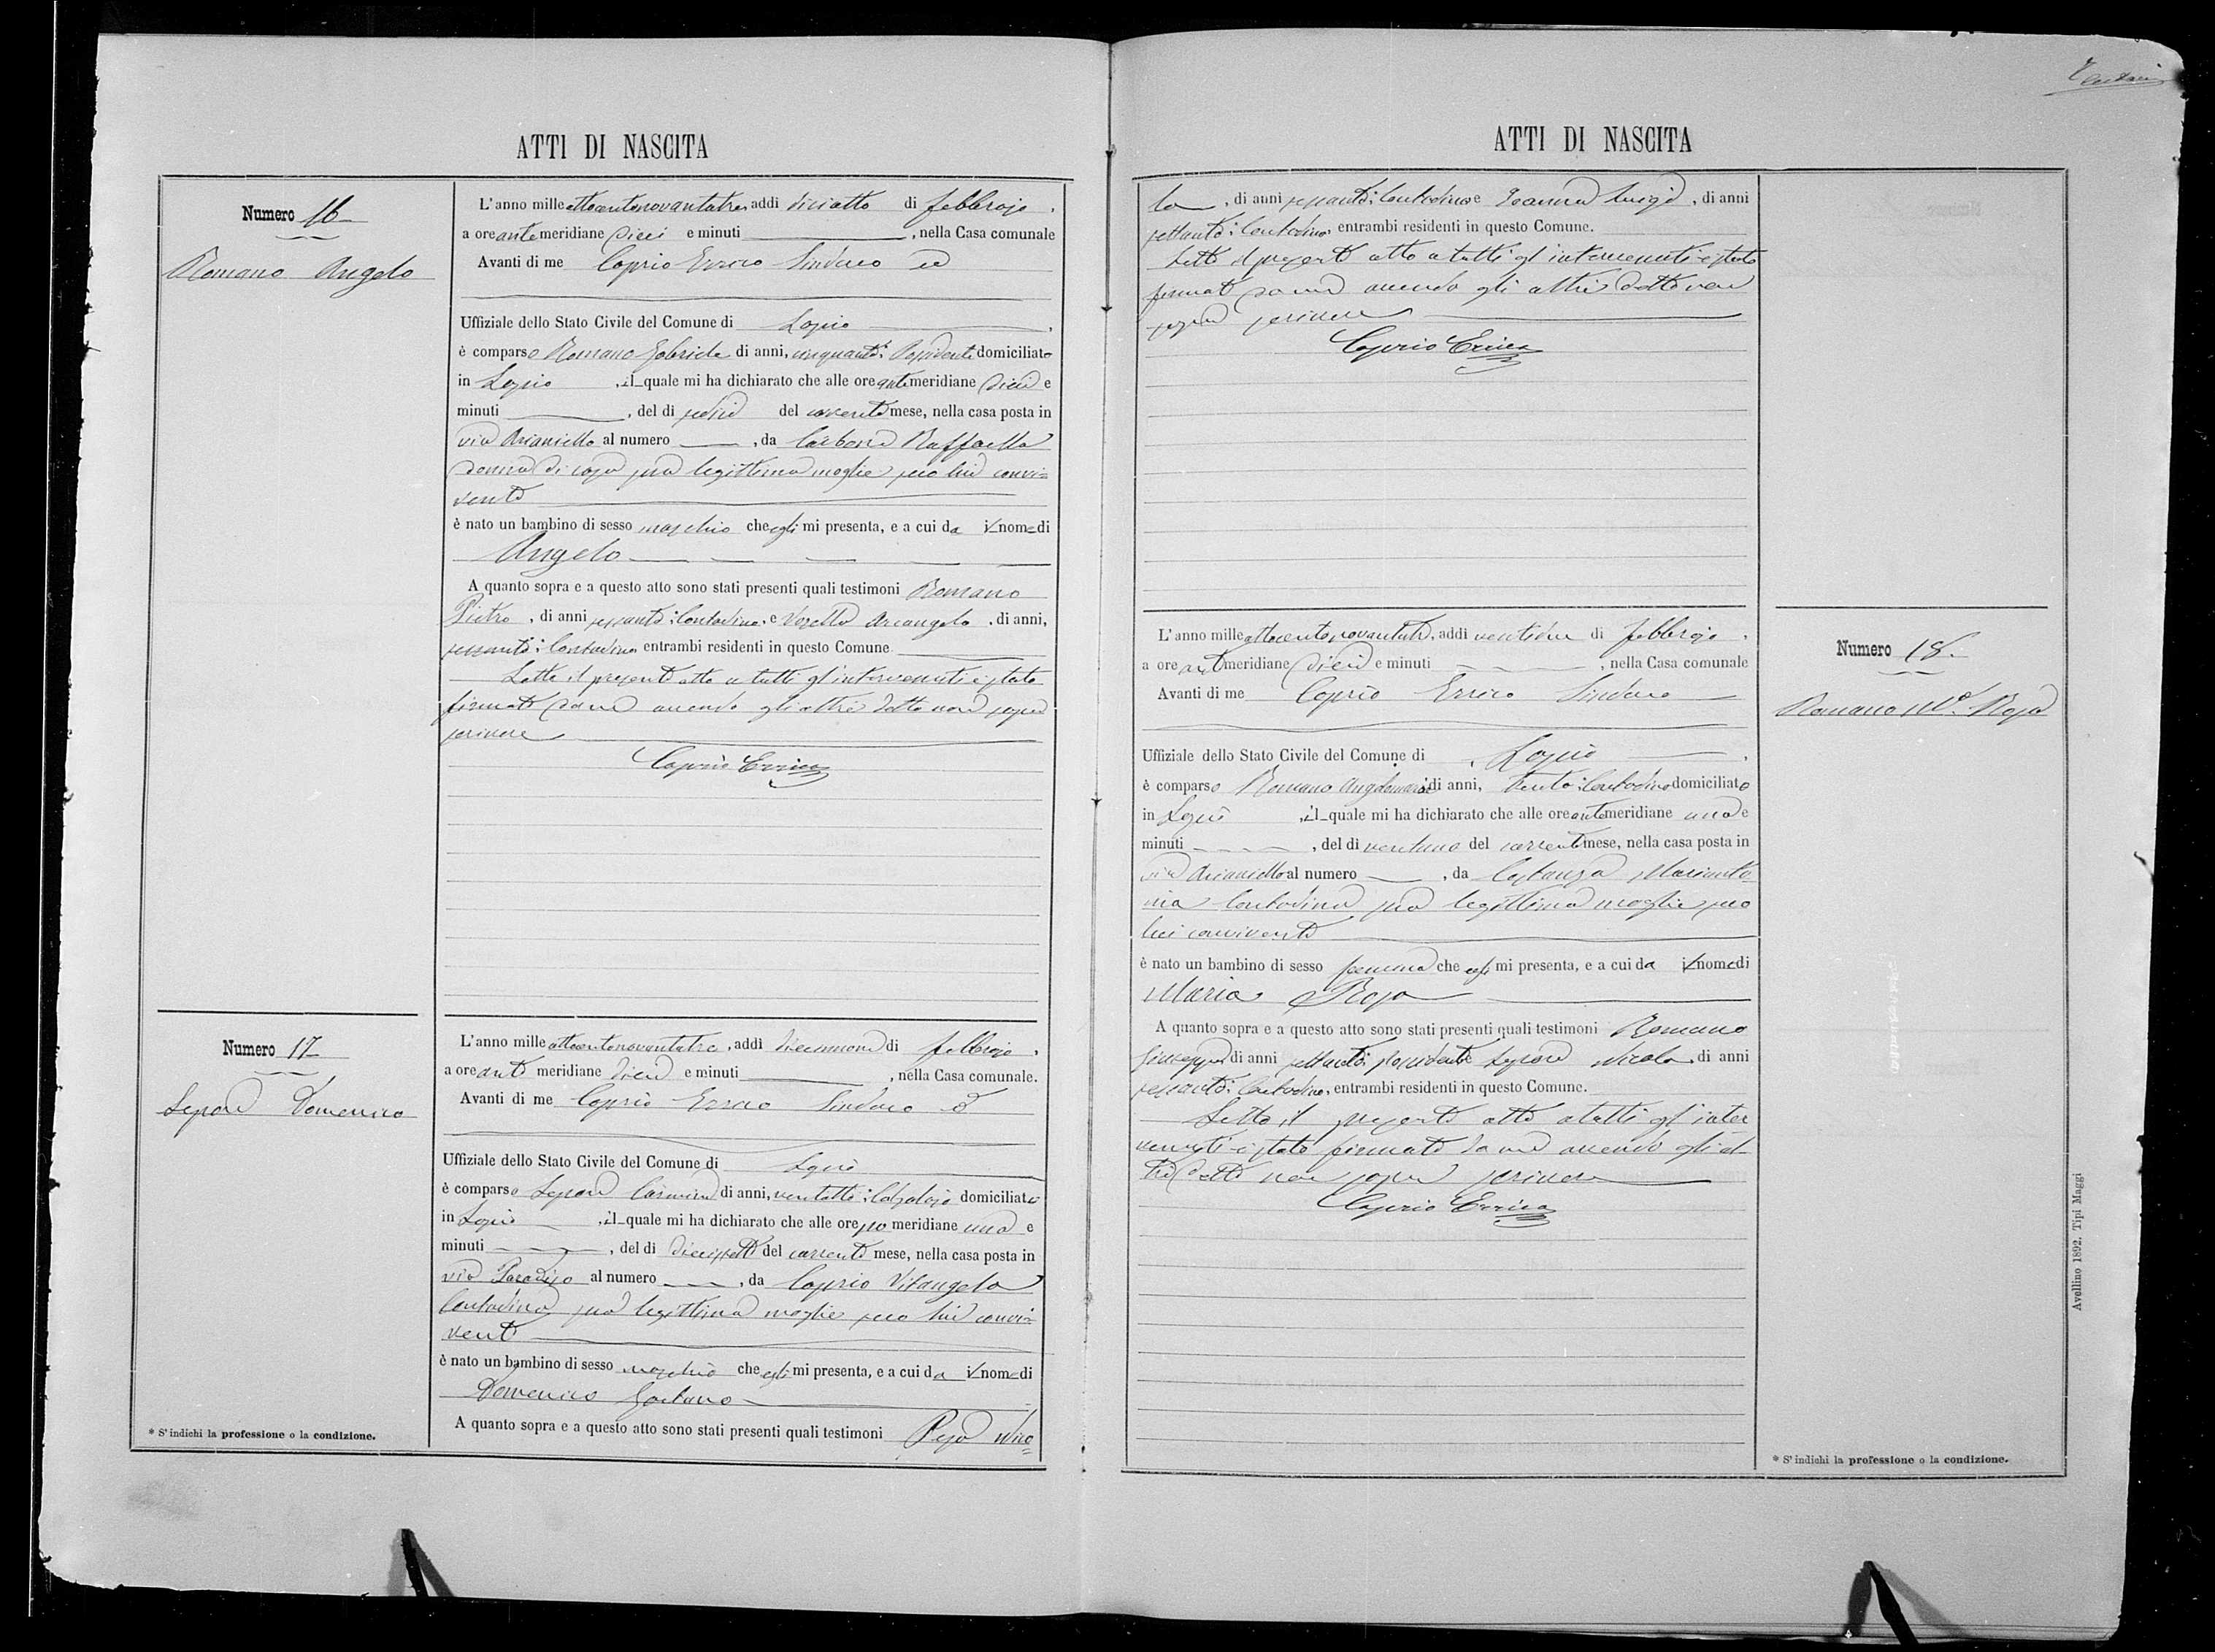 ATTI DI NASCITA
Numero 16
Romano Angelo
L'anno mille ottocentonovantatre, addì diciotto di febbrajo,
a ore ante meridiane dieci e minuti , nella Casa comunale
Avanti di me Caprio Errico Sindaco ed
Uffiziale dello Stato Civile del Comune di Lapio ,
è comparso Romano Gabriele di anni, cinquanta: Possidente domiciliato
in Lapio , il quale mi ha dichiarato che alle ore ante meridiane dieci e
minuti , del dì sedici del corrente mese, nella casa posta in
via Arianiello al numero , da Carbone Raffaella
donna di casa sua legittima moglie seco lui convi=
vente
è nato un bambino di sesso maschio che egli mi presenta, e a cui da il nome di
Angelo
A quanto sopra e a questo atto sono stati presenti quali testimoni Romano
Pietro, di anni sessanta: Contadino, e Arcangelo, di anni,
sessanta: Contadino entrambi residenti in questo Comune
Letto il presente atto a tutti gl'intervenuti è stato
firmato da me avendo gli altri detto non sapere
scrivere
Caprio Errico
Numero 17
Lepore Domenico
L'anno mille ottocentonovantatre, addì diecinnove di febbrajo,
a ore ante meridiane dieci e minuti , nella Casa comunale.
Avanti di me Caprio Errico Sindaco ed
Uffiziale dello Stato Civile del Comune di Lapio
è comparso Lepore Carmine di anni, ventotto: Calzolajo domiciliato
in Lapio , il quale mi ha dichiarato che alle ore po meridiane una e
minuti , del dì diecissette del corrente mese, nella casa posta in
via Paradiso al numero , da Caprio Vitangela
Contadina sua legittima moglie seco lui convi=
vente
è nato un bambino di sesso maschio che egli mi presenta, e a cui da il nome di
Domenico Gaetano
A quanto sopra e a questo atto sono stati presenti quali testimoni Pepe Nico=
* S'indichi la professione o la condizione.
ATTI DI NASCITA
la , di anni sessanta: Contadino e Luigi, di anni
settanta: Contadino, entrambi residenti in questo Comune.
Letto il presente atto a tutti gl'intervenuti è stato
firmato da me avendo gli altri detto non
sapere scrivere
Caprio Errico
Numero 18
Romano Ma Rosa
L'anno mille ottocentonovantatre, addì ventidue di febbrajo,
a ore ante meridiane dieci e minuti , nella Casa comunale
Avanti di me Caprio Errico Sindaco
Uffiziale dello Stato Civile del Comune di Lapio ,
è comparso Romano Angelomaria di anni, trenta: Contadino domiciliato
in Lapio , il quale mi ha dichiarato che alle ore ante meridiane una e
minuti , del dì ventuno del corrente mese, nella casa posta in
via Arianiello al numero , da Costanza Marianto
nia Contadina sua legittima moglie seco
lui convivente
è nato un bambino di sesso femina che egli mi presenta, e a cui da il nome di
Maria Rosa
A quanto sopra e a questo atto sono stati presenti quali testimoni Romano
Giuseppe di anni settanta: possidente Lepore Nicola, di anni
sessanta: Contadino, entrambi residenti in questo Comune.
Letto il presente atto a tutti gl'inter
venuti è stato firmato da me avendo gli al
tri detto non sapere scrivere
Caprio Errico
* S'indichi la professione o la condizione.
Avellino 1892, Tipi Maggi